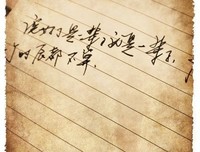 说好了是一辈子就是一辈子
个时辰都不算